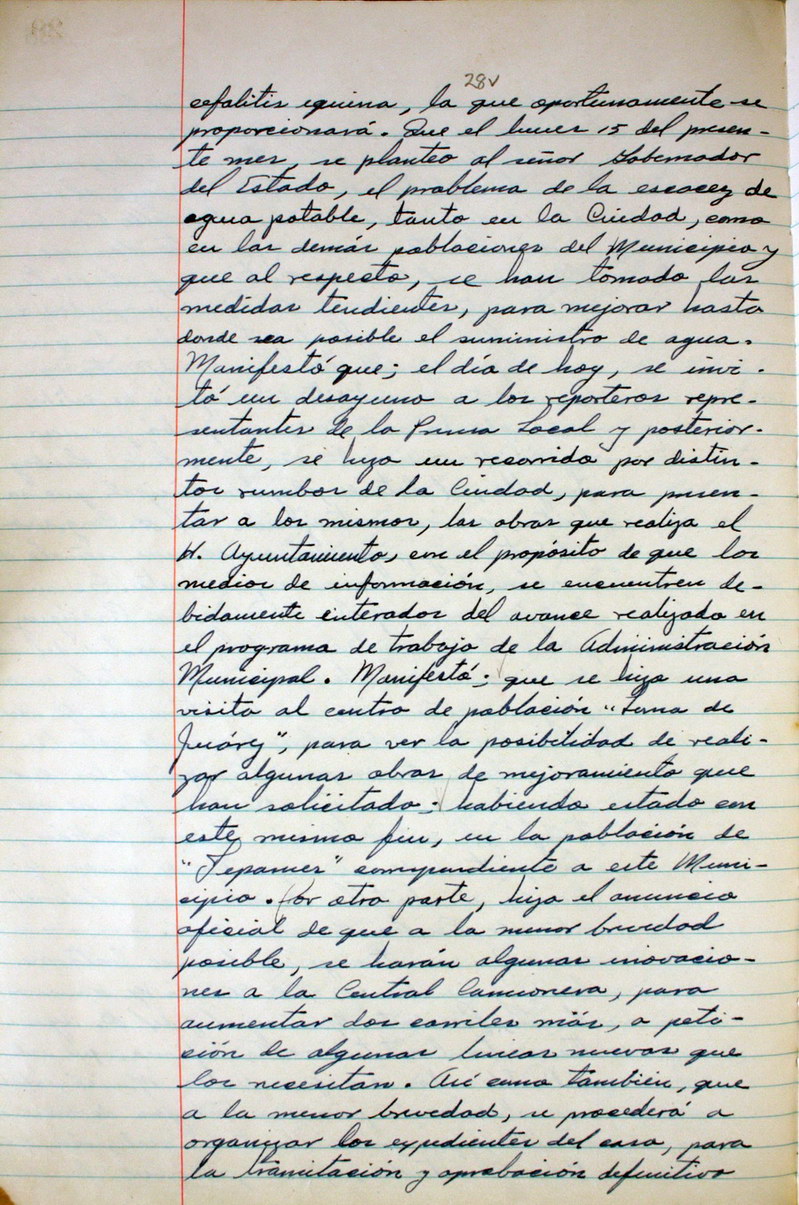 28v
cefalitis equina, la que oportunamente se
proporcionará. Que el lunes 15 del presen-
te mes, se planteo al señor Gobernador
del Estado, el problema de la escacez de
agua potable, tanto en la Ciudad, como
en las demás poblaciones del Municipio y
que al respecto, se han tomado las
medidas tendientes, para mejorar hasta
donde sea posible el suministro de agua.
Manifestó que; el día de hoy, se invi-
tó un desayuno a los reporteros repre-
sentantes de la Prensa Local y posterior-
mente, se hizo un recorrido por distin-
tos rumbos de la Ciudad, para presen-
tar a los mismos, las obras que realiza el
H. Ayuntamiento, con el propósito de que los
medios de información, se encuentren de-
bidamente enterados del avance realizado en
el programa de trabajo de la Administración
Municipal. Manifestó; que se hizo una
visita al centro de población "Loma de
Juárez", para ver la posibilidad de reali-
zar algunas obras de mejoramiento que
han solicitado; habiendo estado con
este mismo fin, en la población de
"Tepames" correspondiente a este Muni-
cipio. Por otra parte, hizo el anuncio
oficial de que a la menor brevedad
posible, se harán algunas inovacio-
nes a la Central Camionera, para
aumentar dos carriles más, a peti-
ción de algunas lineas nuevas que
los necesitan. Así como también, que
a la menor brevedad, se procederá a
organizar los expedientes del caso, para
la trámitación y aprobación definitiva